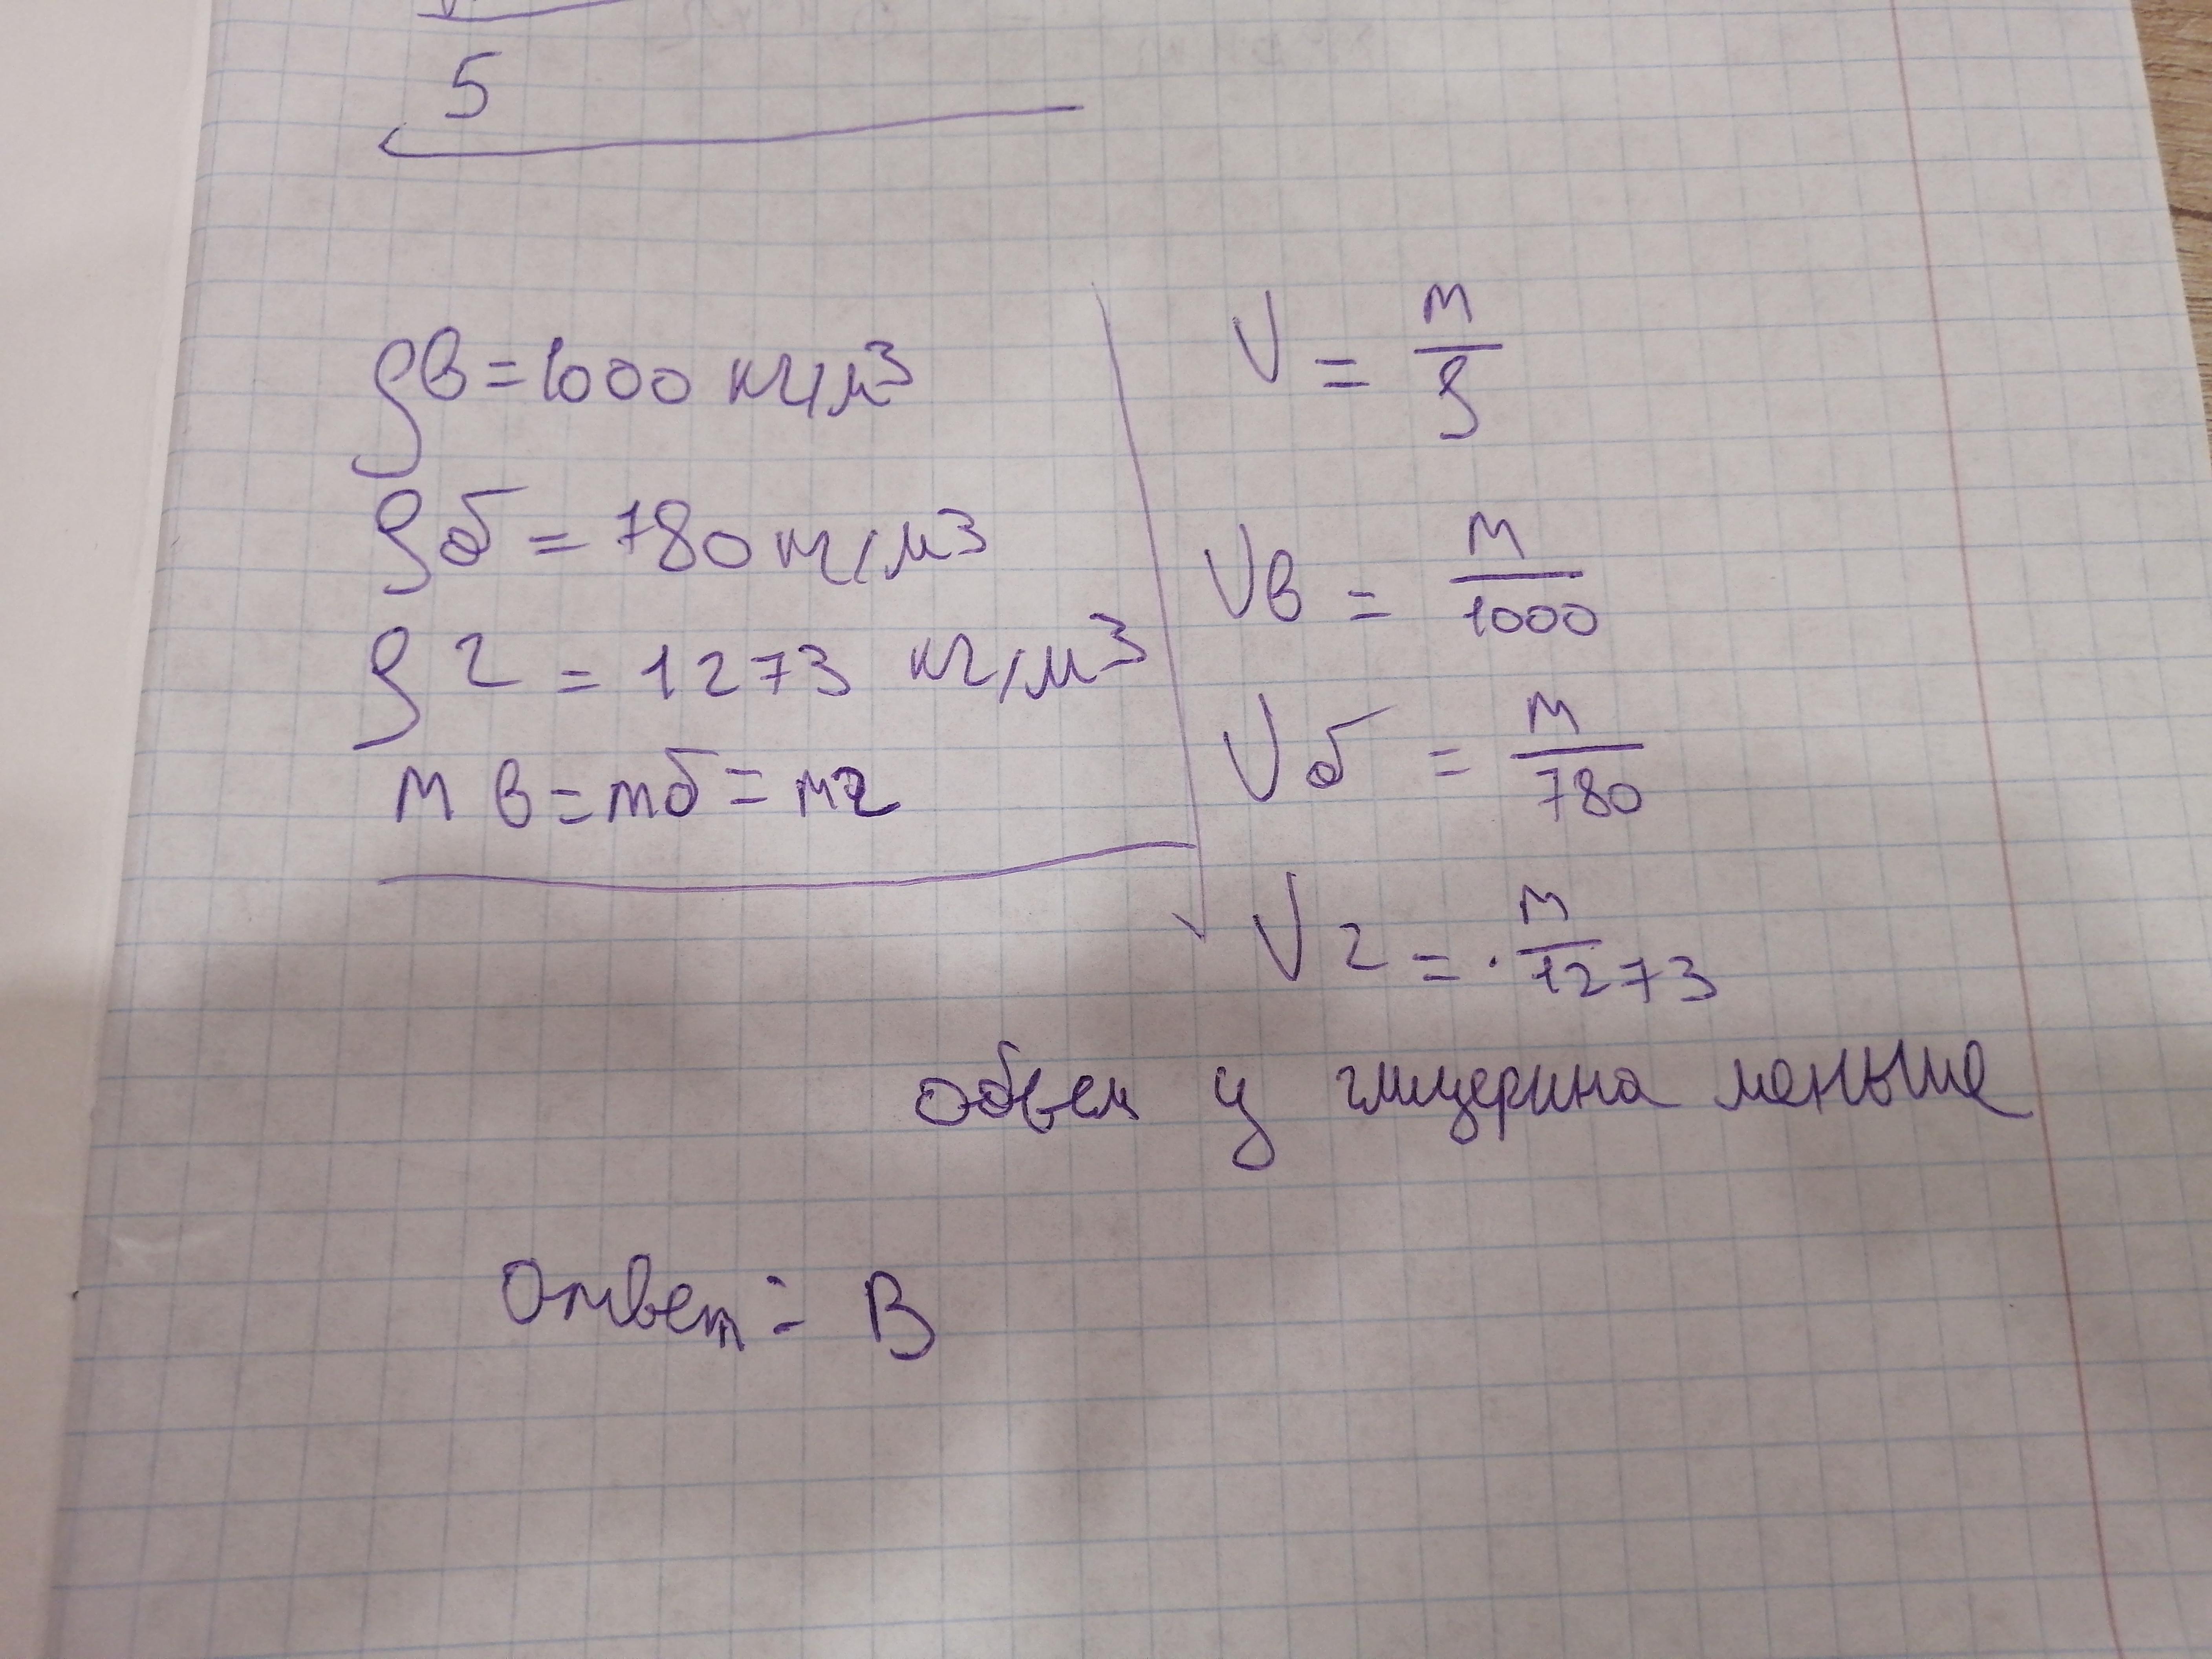 5
ρв = 1000 кг/м³
ρб = 780 кг/м³
ρг = 1273 кг/м³
mв = mб = mг
V = m/ρ
Vв = m/1000
Vб = m/780
Vг = m/1273
объем у глицерина меньше
Ответ: В